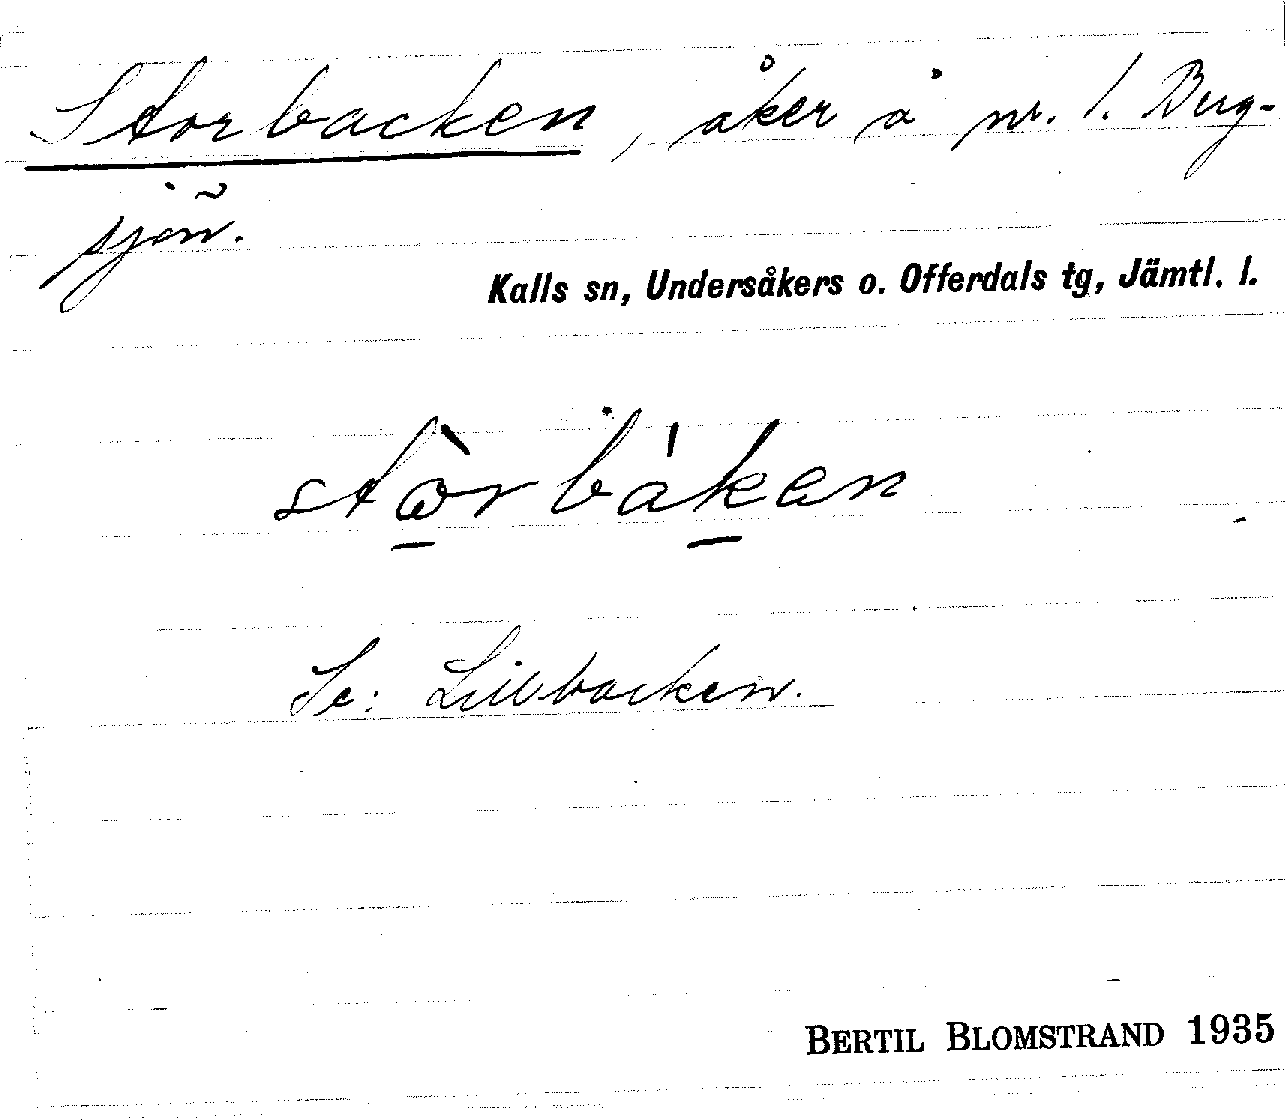 Storbacken, åker å nr. 1. Berg-
sjön.
Kalls sn, Undersåkers o. Offerdals tg, Jämtl. l.
stò̱rbák̲en
Se: Lillbacken.
BERTIL BLOMSTRAND 1935